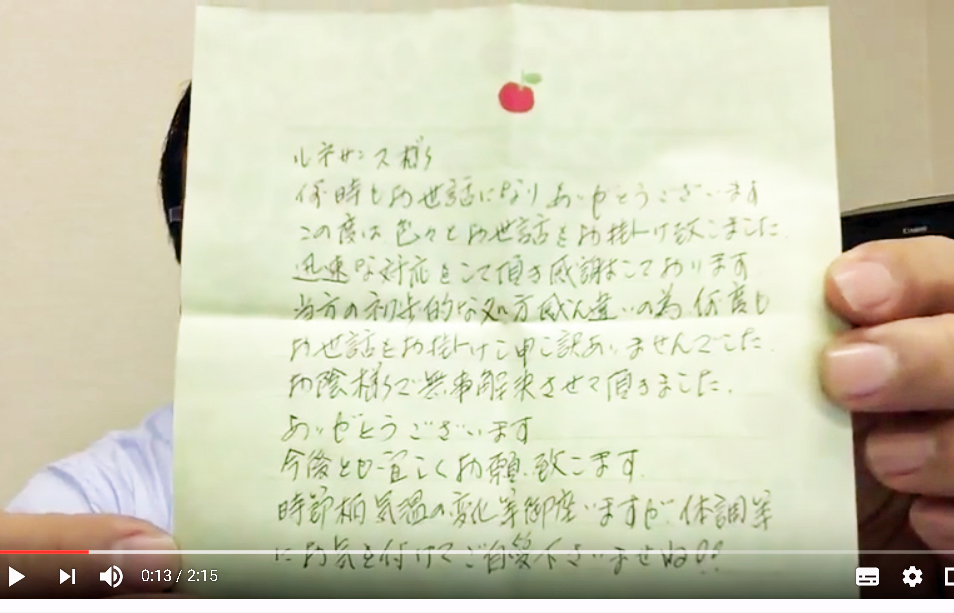 ルネサンス様
何時もお世話になりありがとうございます
この度は色々とお世話をお掛け致しました。
迅速な対応をして頂き感謝しております
当方の初歩的な処方感ん違いの為何度も
お世話をお掛けし申し訳ありませんでした。
お陰様で無事解決させて頂きました。
ありがとうございます
今後とも宜しくお願い致します。
時節柄気温の変化等御座いますが、体調等
にお気を付けてご自愛下さいませね!!
Canon
0:13 / 2:15